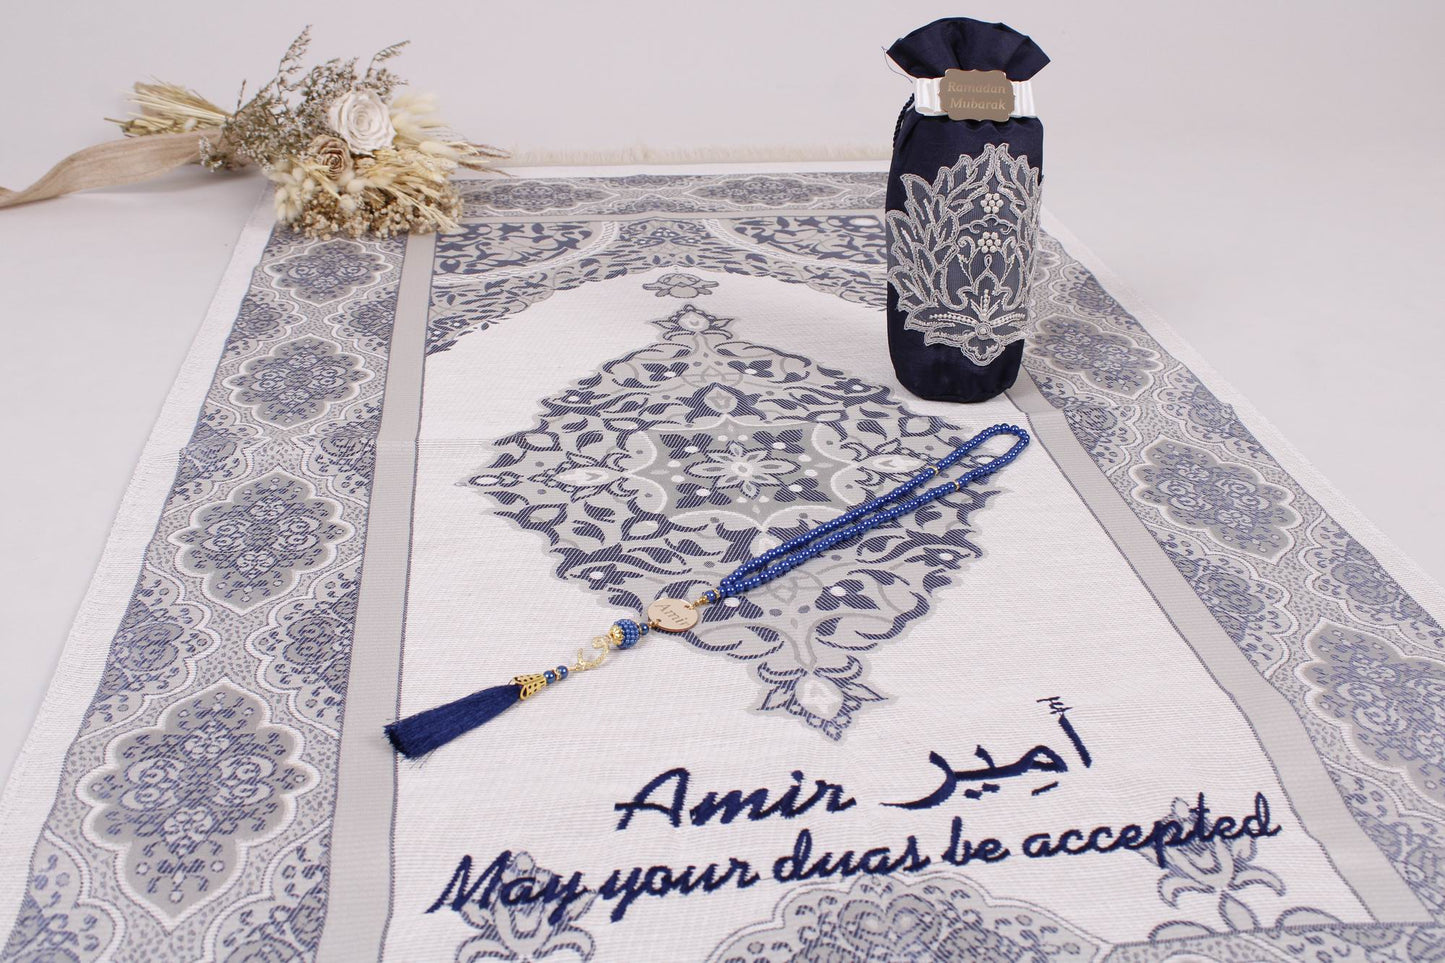 Ramadan
Mubarak
Amir
Amir أَمِير
May your duas be accepted